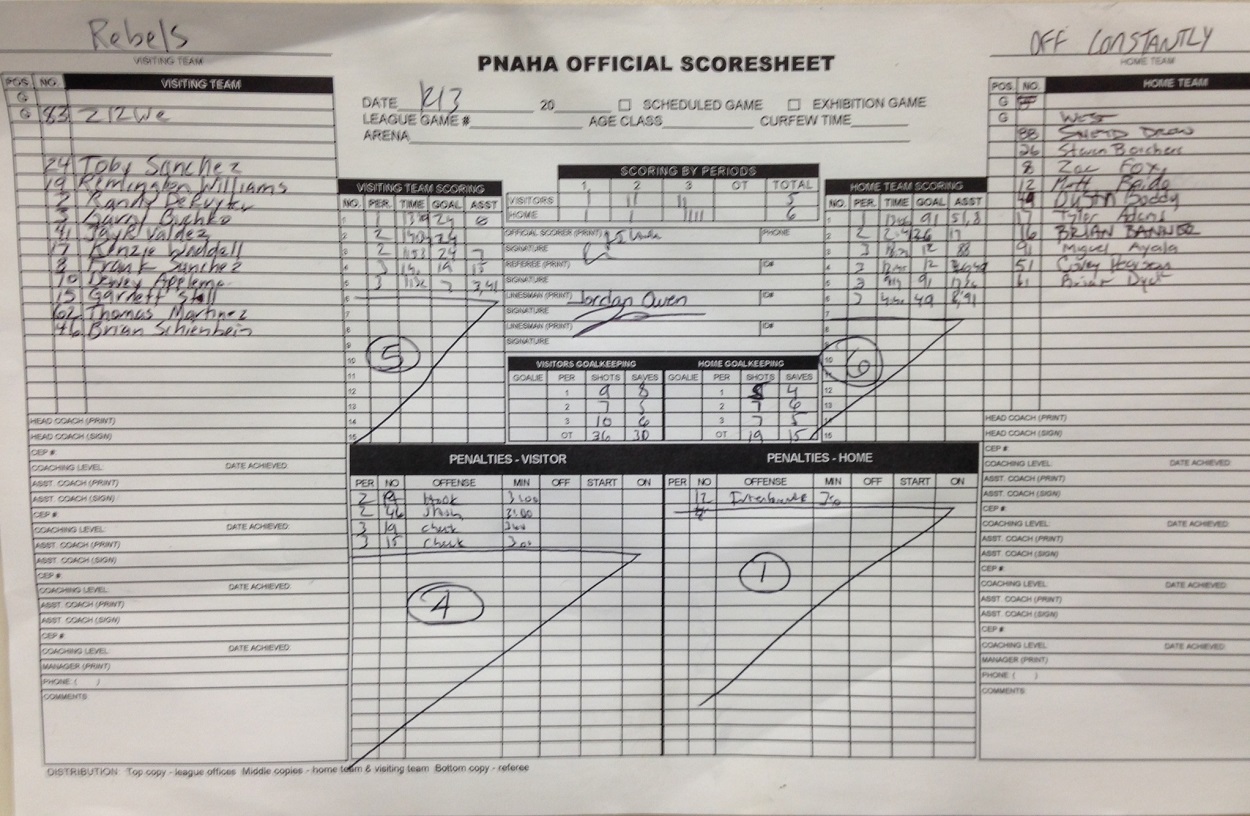 Rebels
VISITING TEAM
OFF CONSTANTLY
HOME TEAM
PNAHA OFFICIAL SCORESHEET
DATE 12/3 20 SCHEDULED GAME EXHIBITION GAME
LEAGUE GAME # AGE CLASS CURFEW TIME
ARENA
POS. NO. VISITING TEAM
G
G 83
24 Toby Sanchez
19 Remington Williams
2 Randy DeRuyter
3
41 Jayk Valdez
17 Kenzie Waddall
8 Frank Sanchez
10 Dewey Appleme
15 Garnett Stoll
62 Thomas Martinez
46 Brian Schienbein
HEAD COACH (PRINT)
HEAD COACH (SIGN)
CEP #:
COACHING LEVEL: DATE ACHIEVED:
ASST. COACH (PRINT)
ASST. COACH (SIGN)
CEP #:
COACHING LEVEL: DATE ACHIEVED:
ASST. COACH (PRINT)
ASST. COACH (SIGN)
CEP #:
COACHING LEVEL: DATE ACHIEVED:
ASST. COACH (PRINT)
ASST. COACH (SIGN)
CEP #:
COACHING LEVEL: DATE ACHIEVED:
MANAGER (PRINT)
PHONE: ( )
COMMENTS:
VISITING TEAM SCORING
NO. PER. TIME GOAL ASST
1 1 24 8
2 2 24
3 2 1153 24 7
4 3 19 15
5 3 7 3,41
6
7
8
9
10
11
12
13
14
15
5
SCORING BY PERIODS
1 2 3 OT TOTAL
VISITORS I II II 5
HOME I I IIII 6
OFFICIAL SCORER (PRINT) PHONE
SIGNATURE
REFEREE (PRINT) ID#
SIGNATURE
LINESMAN (PRINT) Jordan Owen ID#
SIGNATURE
LINESMAN (PRINT) ID#
SIGNATURE
VISITORS GOALKEEPING HOME GOALKEEPING
GOALIE PER SHOTS SAVES GOALIE PER SHOTS SAVES
1 9 8 1 4
2 7 5 2 7 6
3 10 6 3 7 5
OT 36 30 OT 19 15
HOME TEAM SCORING
NO. PER. TIME GOAL ASST
1 1 91 51,8
2 2 26 17
3 3 12 88
4 3 12
5 3 911 91
6 3 49 8,91
7
8
9
10
11
12
13
14
15
6
POS. NO. HOME TEAM
G
G WEST
88
26 Steven Borchers
8 Zac Fox
12 Matt
49 Dustin Boddy
17 Tyler Adams
16 BRIAN BANNER
91 Miguel Ayala
51
61 Brian Dyst
HEAD COACH (PRINT)
HEAD COACH (SIGN)
CEP #:
COACHING LEVEL: DATE ACHIEVED:
ASST. COACH (PRINT)
ASST. COACH (SIGN)
CEP #:
COACHING LEVEL: DATE ACHIEVED:
ASST. COACH (PRINT)
ASST. COACH (SIGN)
CEP #:
COACHING LEVEL: DATE ACHIEVED:
ASST. COACH (PRINT)
ASST. COACH (SIGN)
CEP #:
COACHING LEVEL: DATE ACHIEVED:
MANAGER (PRINT)
PHONE: ( )
COMMENTS:
PENALTIES - VISITOR
PER NO OFFENSE MIN OFF START ON
2 19 hook 3:00
2 46 3:00
3 19 check 3:00
3 15 check 3:00
4
PENALTIES - HOME
PER NO OFFENSE MIN OFF START ON
12
1
DISTRIBUTION: Top copy - league offices Middle copies - home team & visiting team Bottom copy - referee